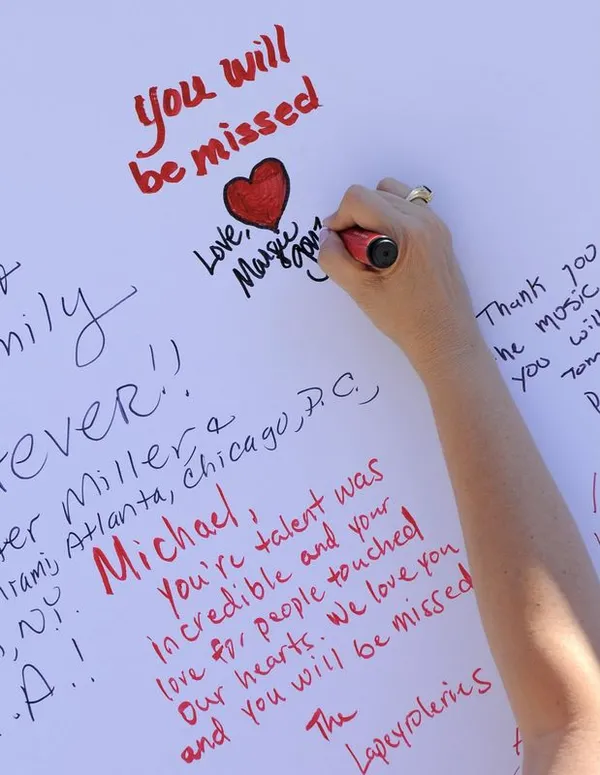 You will
be missed
Love,
Margie
&
mily
ever!!
er Miller &
iami, Atlanta, Chicago, D.C.,
, NY.
.A.!
Michael,
you're talent was
incredible and your
love for people touched
our hearts. We love you
and you will be missed
The
Lapeyroleries
Thank you
he music
you will
Tom